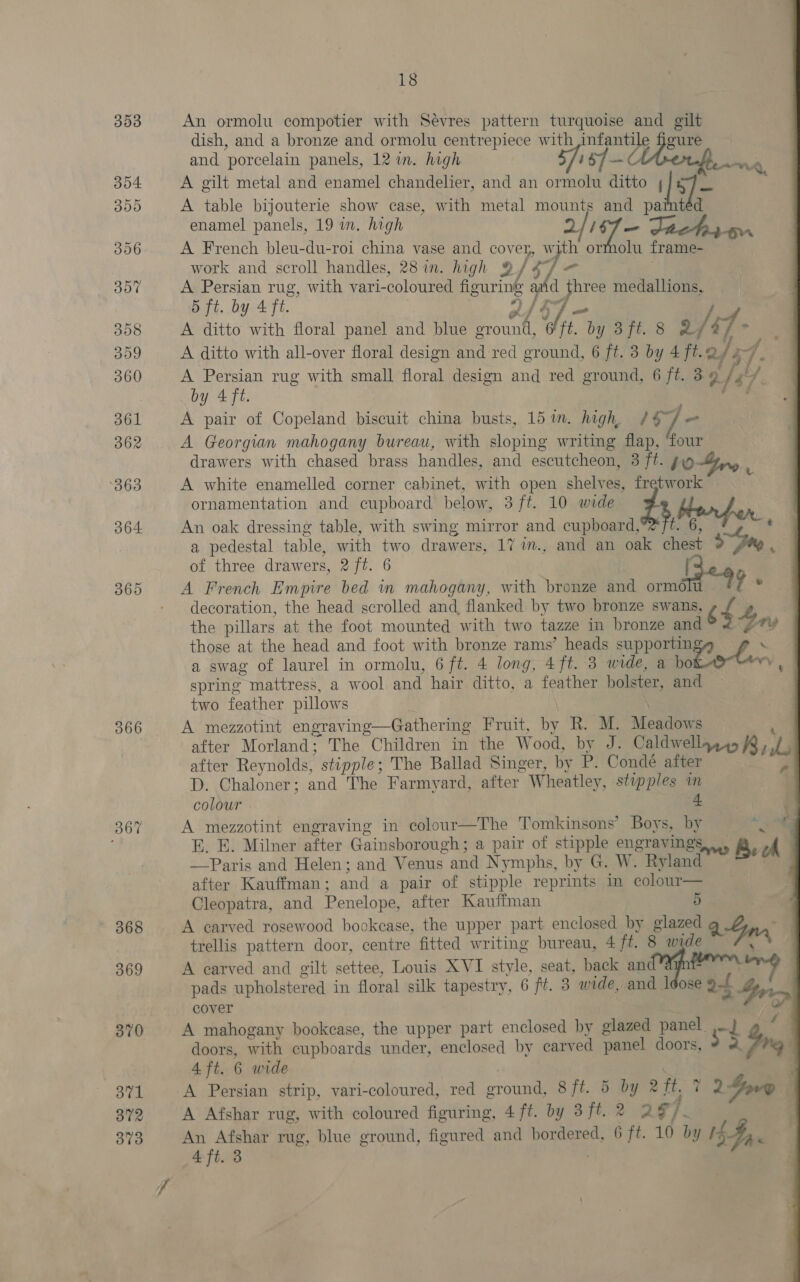 18
353 An ormolu compotier with Sèvres pattern turquoise and gilt
dish, and a bronze and ormolu centrepiece with infantile figure
and porcelain panels, 12 in. high 5/15/-
354 A gilt metal and enamel chandelier, and an ormolu ditto
355 A table bijouterie show case, with metal mounts and painted
enamel panels, 19 in. high 2/15/- Jackson
356 A French bleu-du-roi china vase and cover, with ormolu frame-
work and scroll handles, 28 in. high 2/5/-
357 A Persian rug, with vari-coloured figuring and three medallions,
5 ft. by 4 ft. 2/5/-
358 A ditto with floral panel and blue ground, 6 ft. by 3 ft. 8
359 A ditto with all-over floral design and red ground, 6 ft. 3 by 4 ft.
360 A Persian rug with small floral design and red ground, 6 ft. 3
by 4 ft.
361 A pair of Copeland biscuit china busts, 15 in. high, 15/-
362 A Georgian mahogany bureau, with sloping writing flap, four
drawers with chased brass handles, and escutcheon, 3 ft. 10
363 A white enamelled corner cabinet, with open shelves, fretwork
ornamentation and cupboard below, 3 ft. 10 wide
364 An oak dressing table, with swing mirror and cupboard, 3 ft. 6,
a pedestal table, with two drawers, 17 in., and an oak chest
of three drawers, 2 ft. 6
365 A French Empire bed in mahogany, with bronze and ormolu
decoration, the head scrolled and flanked by two bronze swans,
the pillars at the foot mounted with two tazze in bronze and
those at the head and foot with bronze rams' heads supporting
a swag of laurel in ormolu, 6 ft. 4 long, 4 ft. 3 wide, a box
spring mattress, a wool and hair ditto, a feather bolster, and
two feather pillows
366 A mezzotint engraving—Gathering Fruit, by R. M. Meadows
after Morland; The Children in the Wood, by J. Caldwell
after Reynolds, stipple; The Ballad Singer, by P. Condé after
D. Chaloner; and The Farmyard, after Wheatley, stipples in
colour 4
367 A mezzotint engraving in colour—The Tomkinsons' Boys, by
E. E. Milner after Gainsborough; a pair of stipple engravings
—Paris and Helen; and Venus and Nymphs, by G. W. Ryland
after Kauffman; and a pair of stipple reprints in colour—
Cleopatra, and Penelope, after Kauffman 5
368 A carved rosewood bookcase, the upper part enclosed by glazed
trellis pattern door, centre fitted writing bureau, 4 ft. 8 wide
369 A carved and gilt settee, Louis XVI style, seat, back and
pads upholstered in floral silk tapestry, 6 ft. 3 wide, and loose
cover
370 A mahogany bookcase, the upper part enclosed by glazed panel
doors, with cupboards under, enclosed by carved panel doors,
4 ft. 6 wide
371 A Persian strip, vari-coloured, red ground, 8 ft. 5 by 2 ft. 7
372 A Afshar rug, with coloured figuring, 4 ft. by 3 ft. 2
373 An Afshar rug, blue ground, figured and bordered, 6 ft. 10 by
4 ft. 3